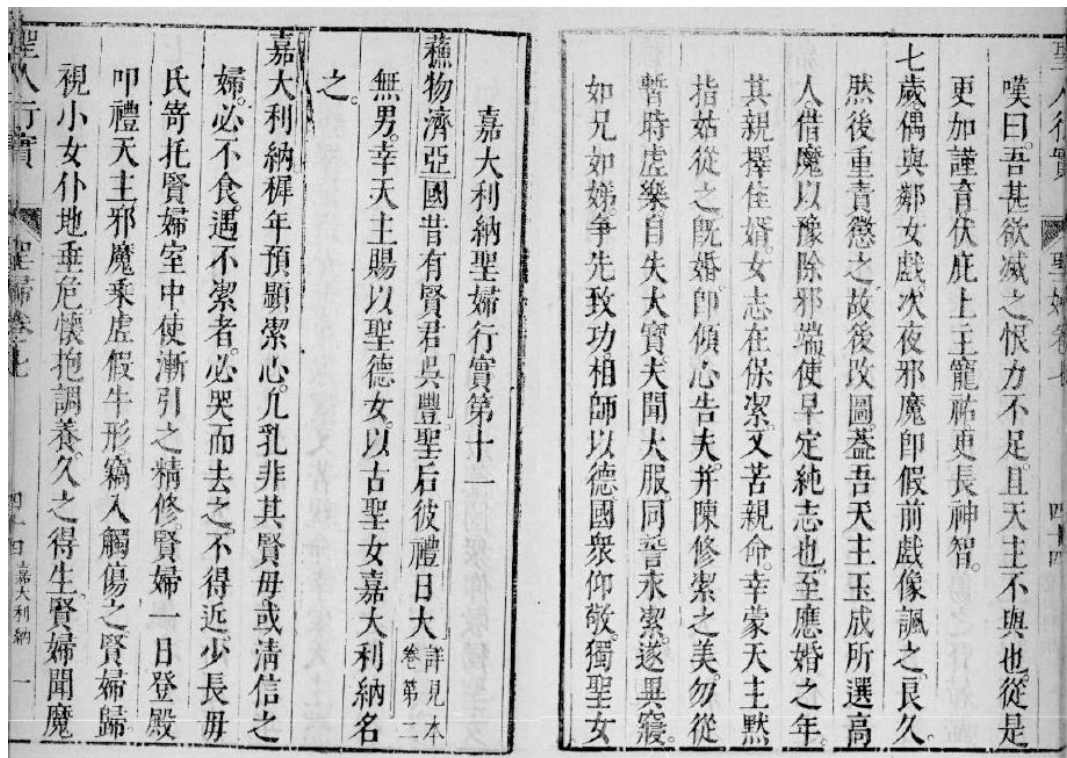 聖人行實 聖婦卷七 四十四
嘆曰。吾甚欲滅之。恨力不足。且天主不與也。從是
更加謹育。伏庇上主寵祐。更長神智。
七歲。偶與鄰女戲。次夜邪魔卽假前戲像諷之。良久。
然後重責懲之。故後攺圖。葢吾天主玉成所選高
人。借魔以豫除邪端。使早定純志也。至應婚之年。
其親擇佳婿。女志在保潔。又苦親命。幸蒙天主黙
指姑從之。旣婚。卽傾心告夫。幷陳修潔之美。勿從
暫時虛樂。自失大寶。夫聞大服。同誓永潔。遂異寢。
如兄如娣。爭先致功。相師以德。國衆仰敬。獨聖女
嘉大利納聖婦行實第十一
蘓物濟亞國昔有賢君吳豐聖后彼禮日大詳見本卷第二
無男。幸天主賜以聖德女。以古聖女嘉大利納名
之。
嘉大利納穉年預顯潔心。凢乳非其賢母或清信之
婦。必不食。遇不潔者。必哭而去之。不得近。少長母
氏寄托賢婦室中使漸引之精修。賢婦一日登殿
叩禮天主。邪魔乘虛假牛形。竊入觸傷之。賢婦歸。
視小女仆地垂危。懷抱調養。久之得生。賢婦聞魔
聖人行實 聖婦卷七 四十四 嘉大利納 一